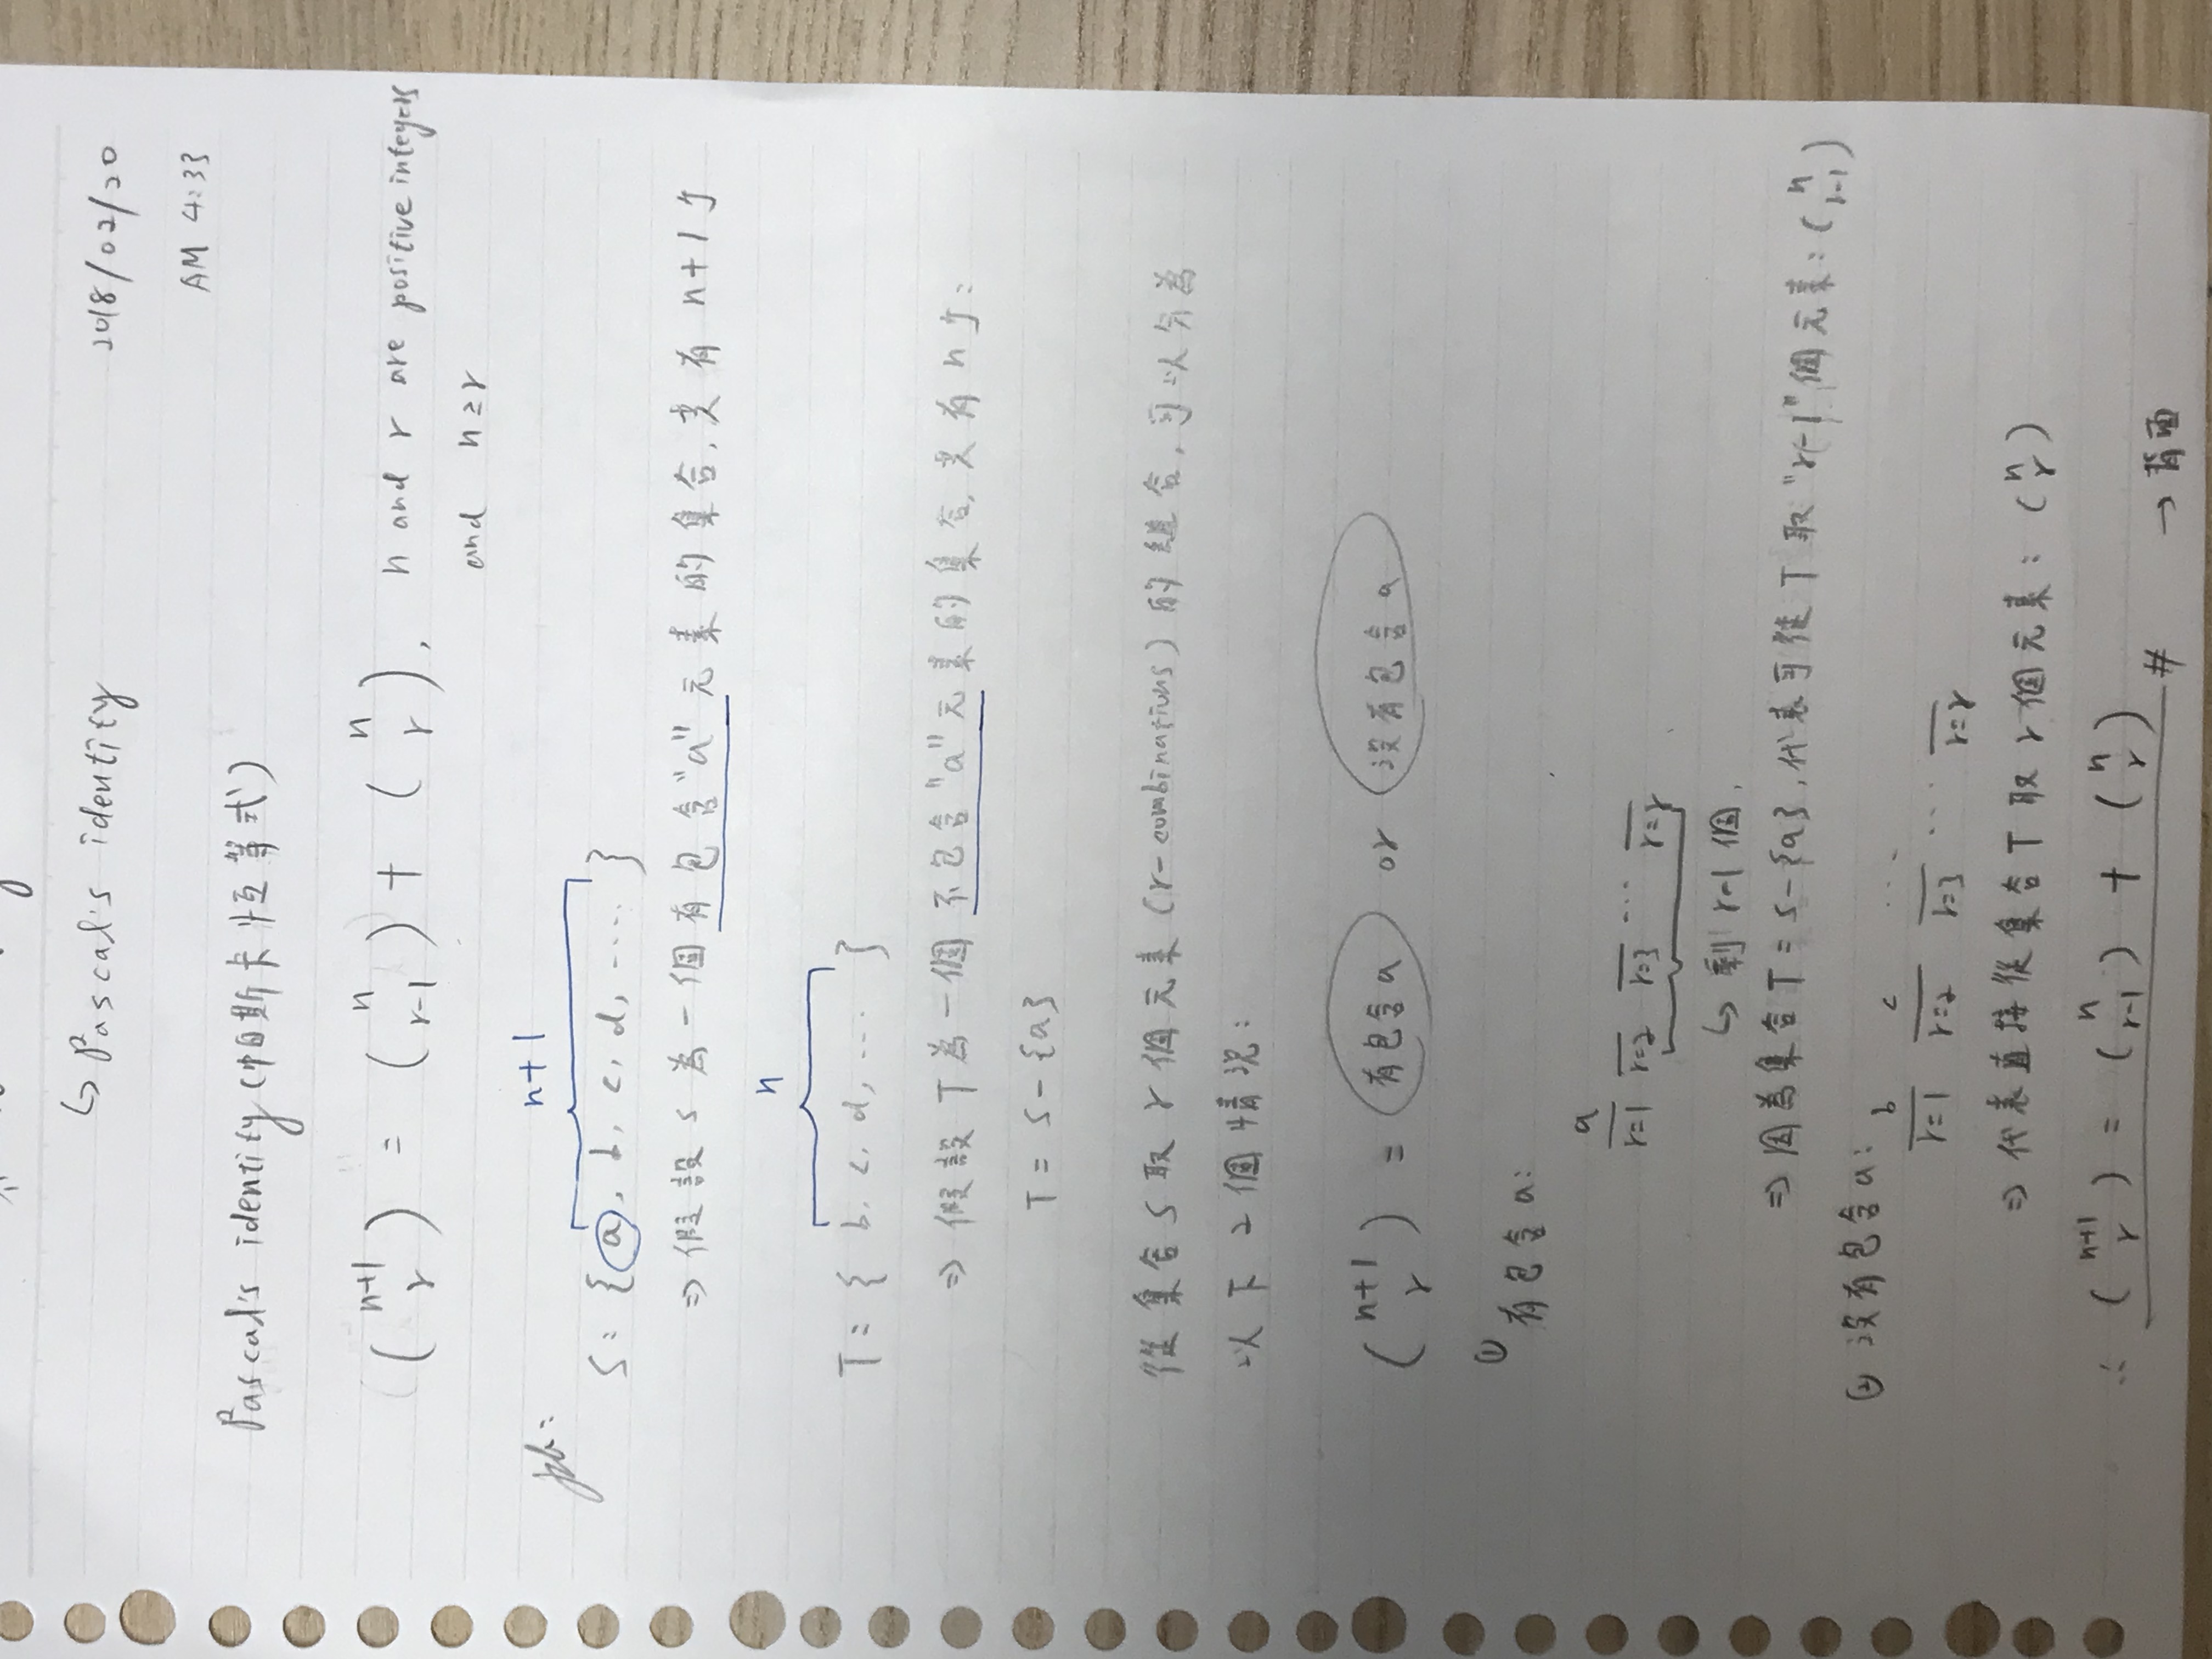 ↳ Pascal's identity
2018/02/20
AM 4:33
Pascal's identity (帕斯卡恆等式)
(n+1 r) = (n r-1) + (n r), n and r are positive integers
and n≥r
pf:
n+1
S: {a, b, c, d, ....}
⇒ 假設 S 為一個有包含"a"元素的集合, 共有 n+1 個
n
T = { b, c, d, ... }
⇒ 假設 T 為一個不包含"a"元素的集合, 共有 n 個:
T = S - {a}
從集合 S 取 r 個元素 (r-combinations) 的組合, 可以分為
以下 2 個情況:
(n+1 r) = 有包含a or 沒有包含a
① 有包含a:
a
r=1 r=2 r=3 ... r=r
↳ 剩 r-1 個.
⇒ 因為集合 T = S-{a}, 代表可從 T 取 "r-1" 個元素: (n r-1)
② 沒有包含a:
b c ...
r=1 r=2 r=3 ... r=r
⇒ 代表直接從集合 T 取 r 個元素: (n r)
∴ (n+1 r) = (n r-1) + (n r) #
→ 背面